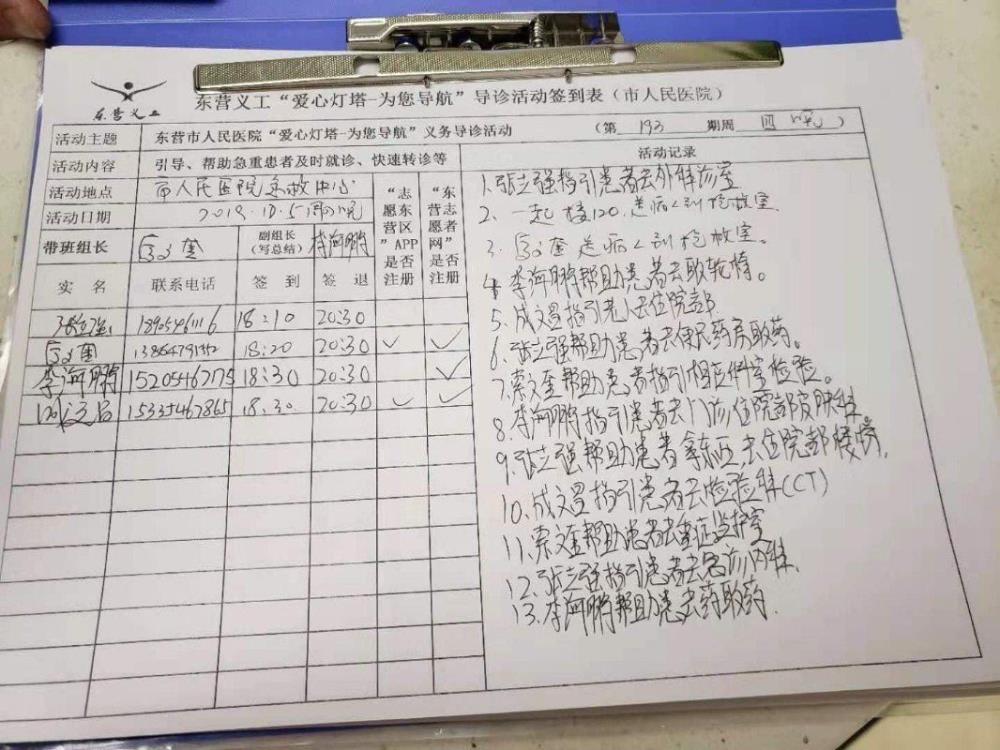 东营义工
东营义工“爱心灯塔-为您导航”导诊活动签到表（市人民医院）
活动主题 东营市人民医院“爱心灯塔-为您导航”义务导诊活动 （第 193 期周 四 晚）
活动内容 引导、帮助急重患者及时就诊、快速转诊等
活动地点 市人民医院急救中心
活动日期 2019.10.5
带班组长 副组长（写总结） 李海鹏
“志愿东营区”APP是否注册
“东营志愿者网”是否注册
实 名 联系电话 签 到 签 退
张立强 18905461116 18:10 20:30
18:20 20:30 ✓ ✓
李海鹏 15205462775 18:30 20:30 ✓
成文昌 15335467865 18:30 20:30 ✓ ✓
活动记录
1.张立强指引患者去外科诊室
2.一起接120.送病人到抢救室.
3.送病人到抢救室。
4.李海鹏帮助患者去取轮椅。
5.成文昌指引老人去住院部
6.张立强帮助患者去便民药房取药。
7.索文奎帮助患者指引相应科室检验。
8.李海鹏指引患者去门诊住院部皮肤科.
9.张立强帮助患者拿东西去住院部楼
10.成文昌指引患者去检验科(CT)
11.索文奎帮助患者去重症监护室
12.张立强指引患者去急诊内科.
13.李海鹏帮助患去药取药.